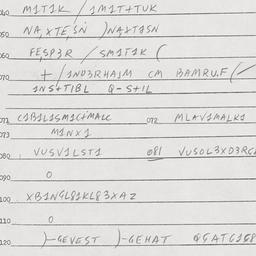 040 M1T1K / 1M1T+TUK
050 NA,XTE,SN )NAXTASN
060 FE,SP3R / SM1T1K (
070 + / 1ND3RHA1M CM BAMRU.F (
1NS+TIBL Q-S+IL
071 C1B1L1SM1C+MALC 072 MLAV1MALK1
073 M1NX1
080 VUSV1LST1 081 VUSOL3XD3RC
090 O
100 XB1NGL81KL83XAZ
110 O
120 )-GEVEST )-GEHAT QSATC1G8